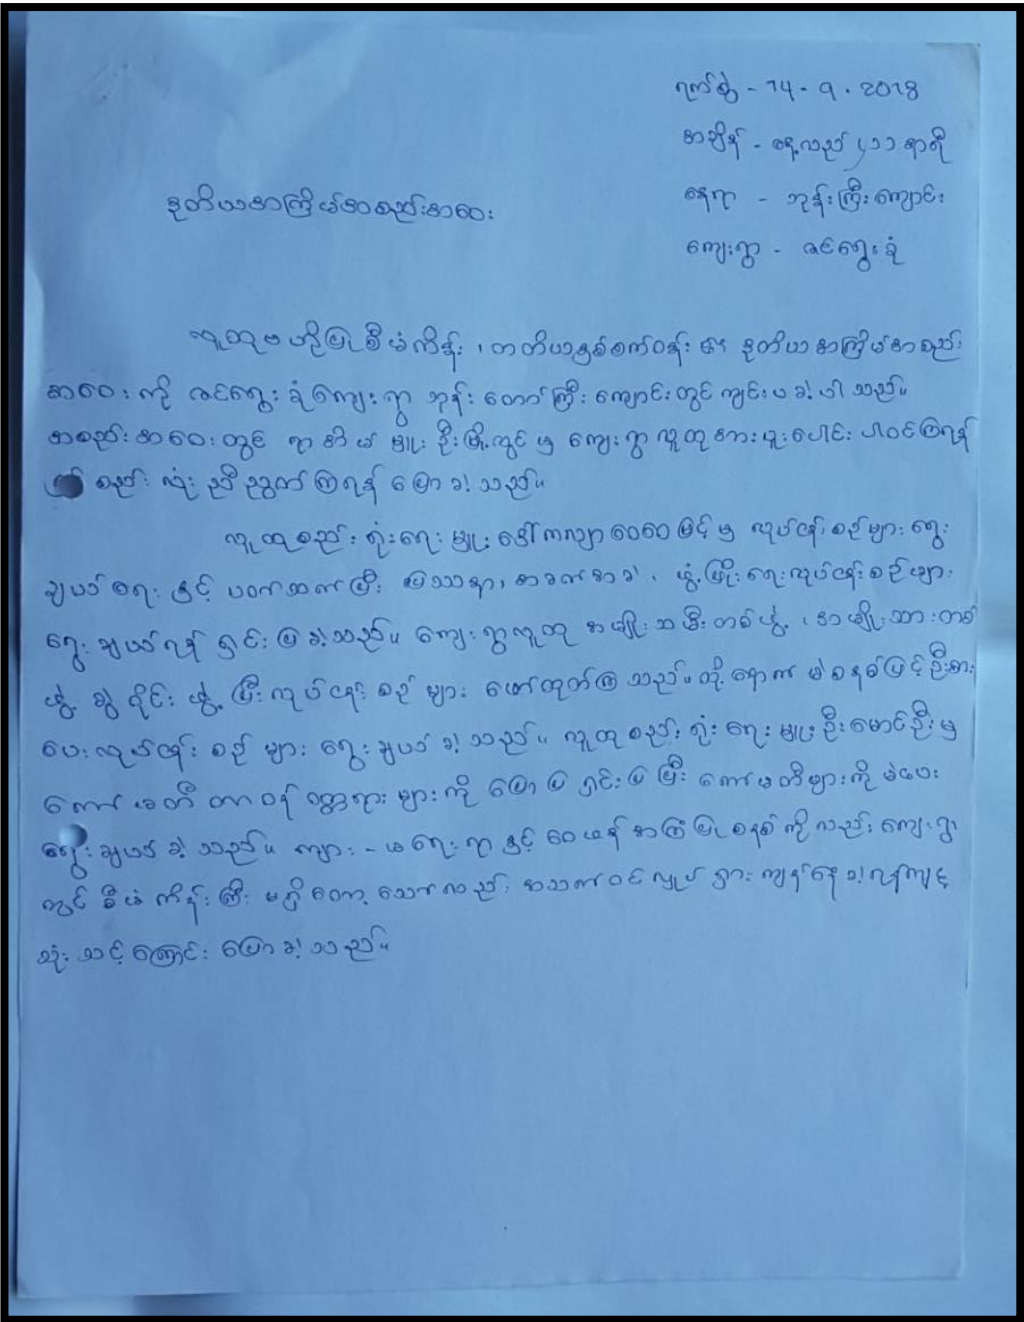 ရက်စွဲ - 14 - 9 . 2018
အချိန် - နေ့လည် ၂း၁၁ နာရီ
နေရာ - ဘုန်းကြီးကျောင်း
ဒုတိယအကြိမ်အစည်းအဝေး
ကျေးရွာ - ဇင်ရွေးခုံ
လူထုဗဟိုပြုစီမံကိန်း ၊ တတိယနှစ်စက်ဝန်း ၏ ဒုတိယအကြိမ်အစည်း
အဝေး ကို ဇင်ရွေးခုံကျေးရွာ ဘုန်းတော်ကြီးကျောင်းတွင် ကျင်းပခဲ့ပါသည်။
အစည်းအဝေးတွင် ရာအိမ်မှူး ဦးမြို့လွင်မှ ကျေးရွာလူထုအားပူးပေါင်းပါဝင်ကြရန်
စည်းလုံးညီညွတ်ကြရန် ပြောခဲ့သည်။
လူထုစည်းရုံးရေးမှူး ဒေါ်ကလျာဝေဝေမြင့်မှ လုပ်ငန်းစဉ်များရွေး
ချယ်ရေးနှင့် ပတ်သက်ပြီး ပြဿနာ၊ အခက်အခဲ ၊ ဖွံ့ဖြိုးရေးလုပ်ငန်းစဉ်များ
ရွေးချယ်ရန် ရှင်းပြခဲ့သည်။ ကျေးရွာလူထု အမျိုးသမီးတစ်ဖွဲ့ ၊ အမျိုးသားတစ်
ဖွဲ့ ခွဲဝိုင်းဖွဲ့ပြီး လုပ်ငန်းစဉ်များ ဖော်ထုတ်ကြသည်။ ထို့နောက် မဲစနစ်ဖြင့်ဦးစား
ပေးလုပ်ငန်းစဉ်များ ရွေးချယ်ခဲ့သည်။ လူထုစည်းရုံးရေးမှူး ဦးမောင်ဦးမှ
ကော်မတီတာဝန်ဝတ္တရားများကို ပြောပြရှင်းပြပြီး ကော်မတီများကိုမဲပေး
ရွေးချယ်ခဲ့သည်။ ကျား - မရေးရာနှင့် ဝေဖန်အကြံပြုစနစ်ကိုလည်း ကျေးရွာ
တွင် စီမံကိန်းကြီး မရှိတော့သော်လည်း အသက်ဝင်လှုပ်ရှားကျန်နေခဲ့ရန်ကျင့်
သုံးသင့်ကြောင်း ပြောခဲ့သည်။